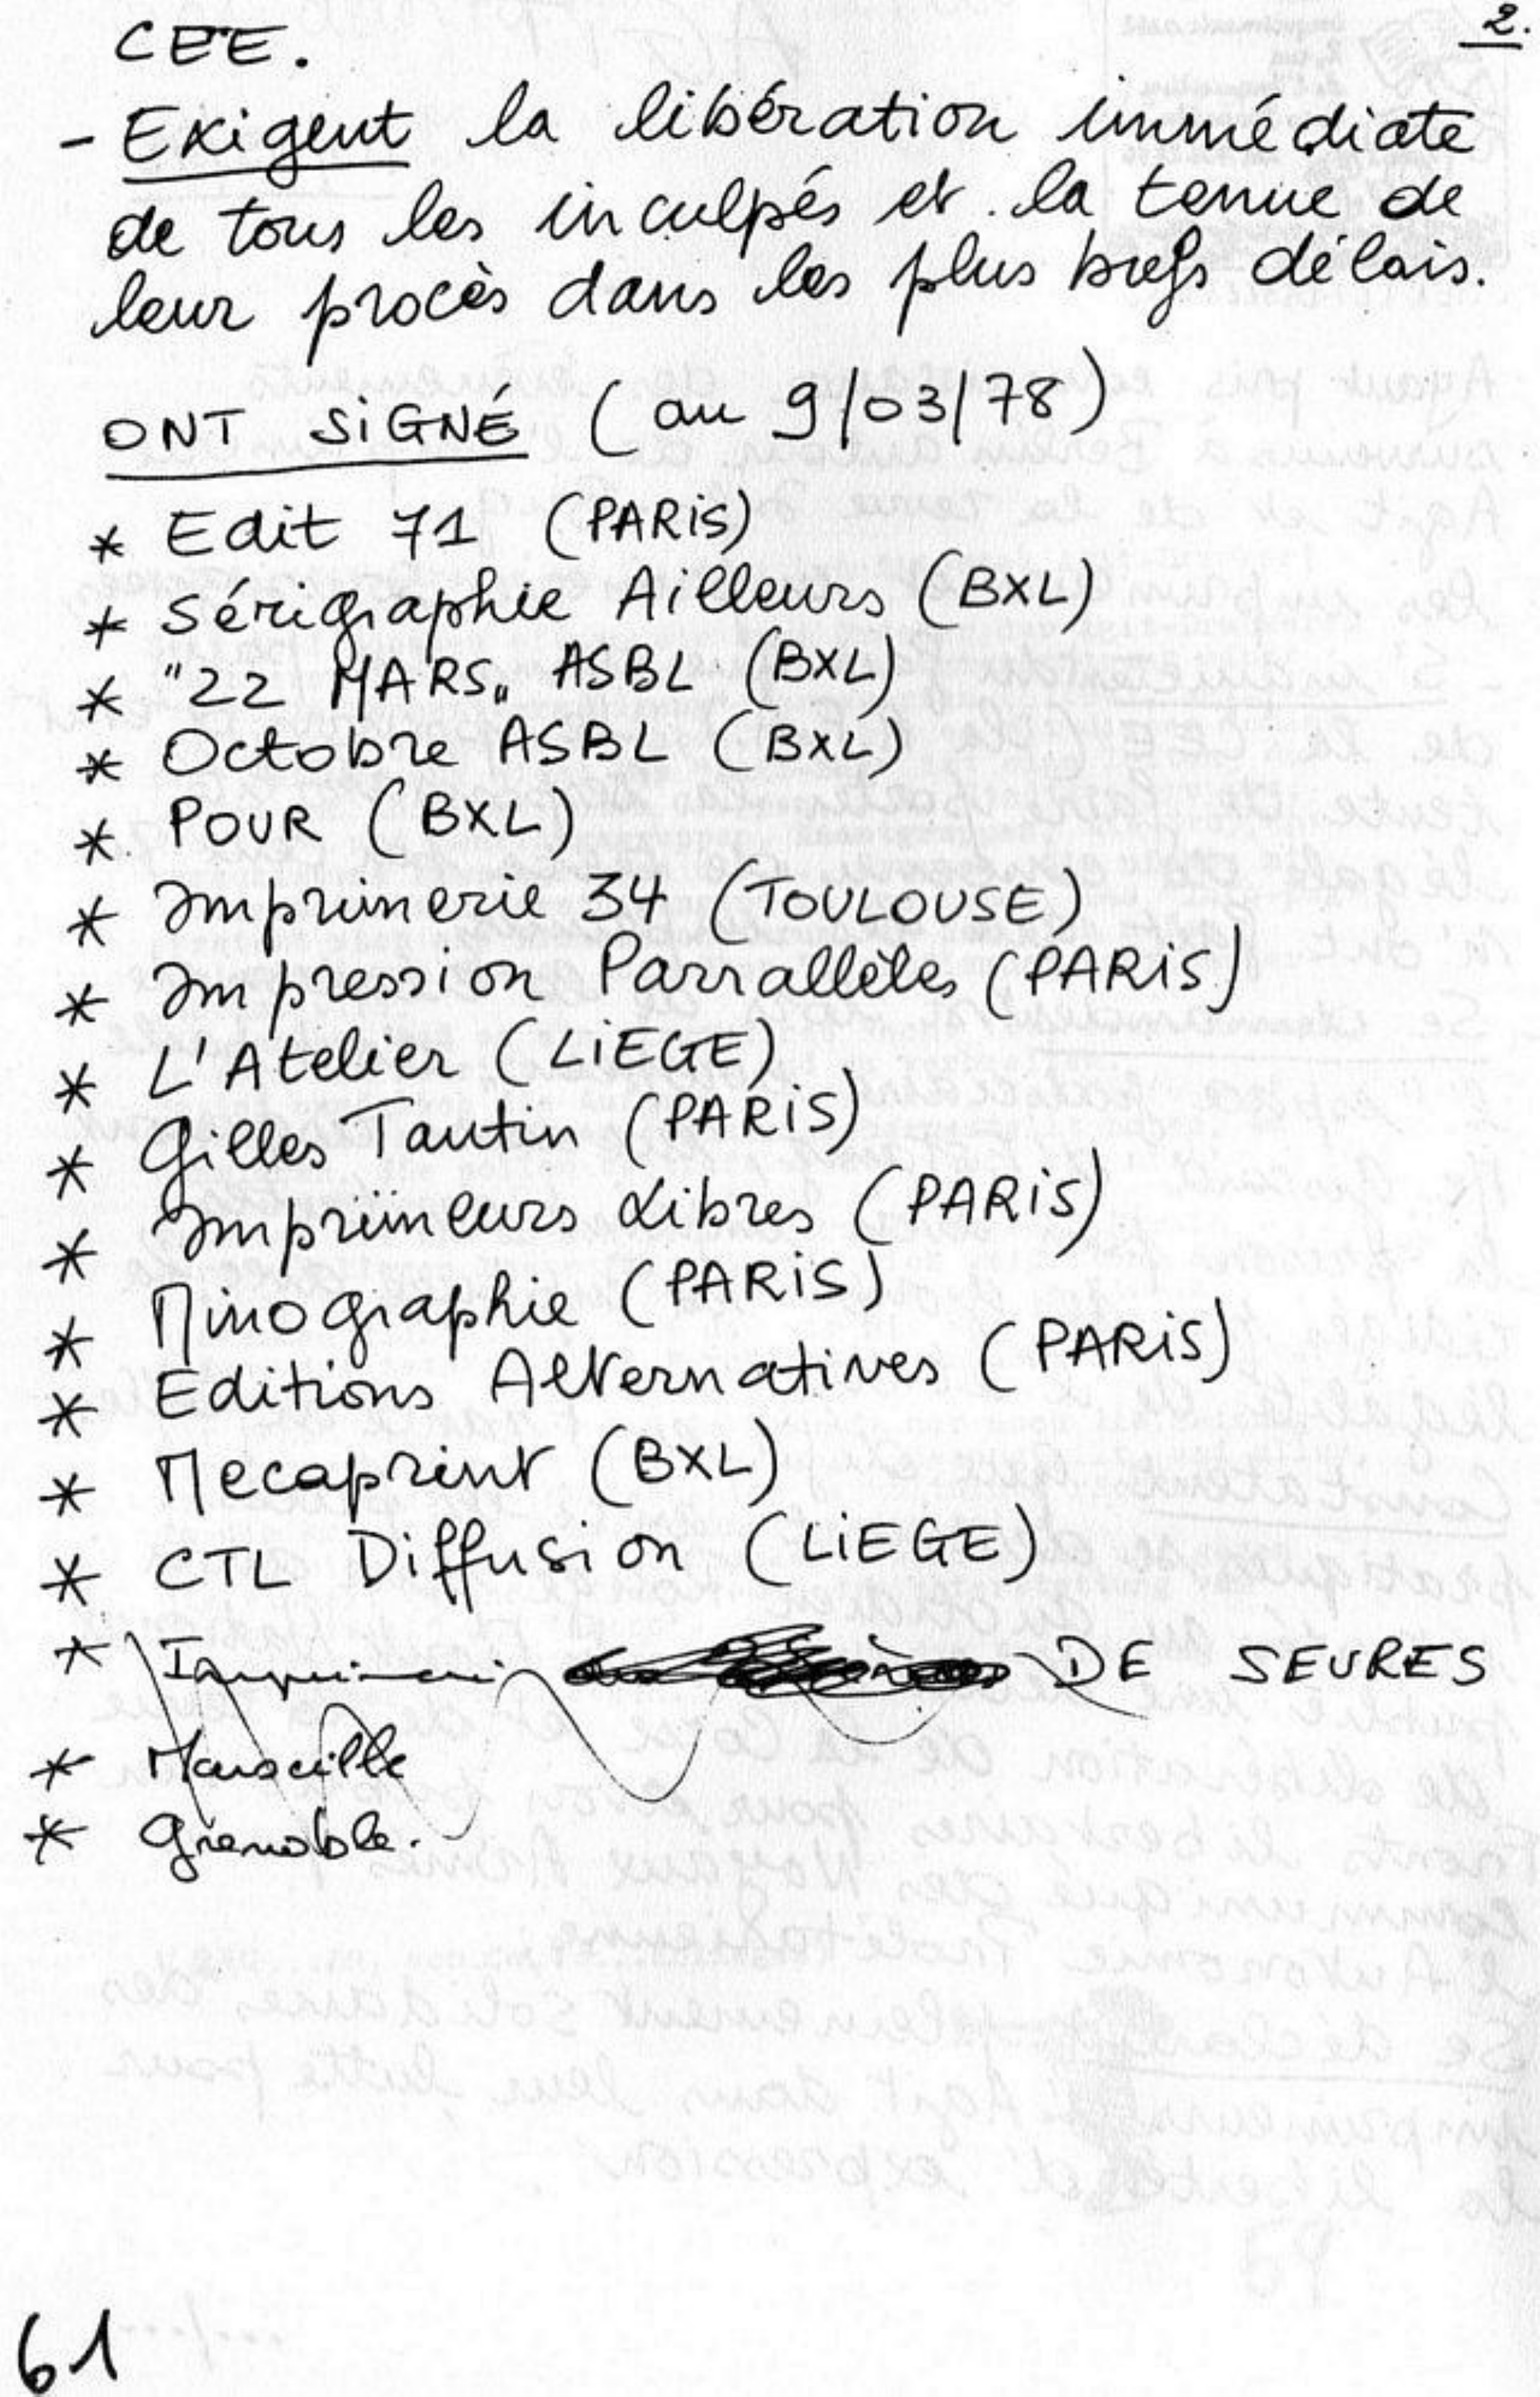 2.
CEE.
- Exigent la libération immédiate
de tous les inculpés et la tenue de
leur procès dans les plus brefs délais.
ONT SIGNÉ (au 9/03/78)
* Edit 71 (PARIS)
* Sérigraphie Ailleurs (BXL)
* "22 MARS" ASBL (BXL)
* Octobre ASBL (BXL)
* POUR (BXL)
* Imprimerie 34 (TOULOUSE)
* Impression Parrallèles (PARIS)
* L'Atelier (LIEGE)
* Gilles Tautin (PARIS)
* Imprimeurs Libres (PARIS)
* Minographie (PARIS)
* Editions Alternatives (PARIS)
* Mecaprint (BXL)
* CTL Diffusion (LIEGE)
* DE SEVRES
* Marseille
* Grenoble.
61